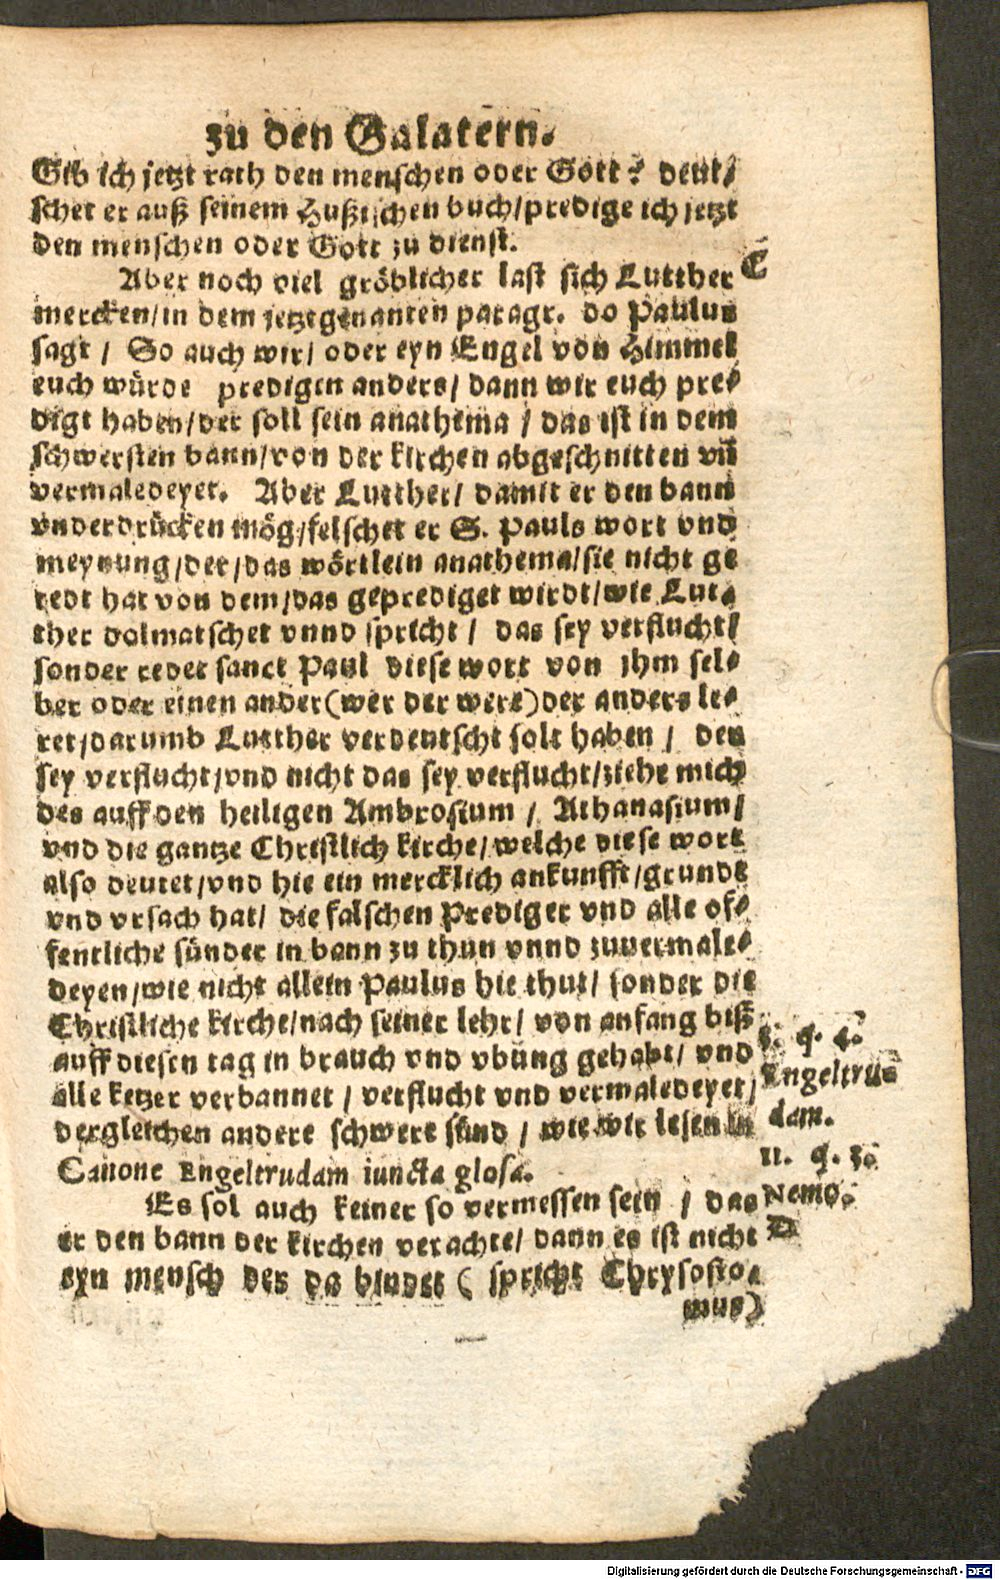 zu den Galatern.
Gib ich jetzt rath den menschen oder Gott? deut⸗
schet er auß seinem Hußischen buch/predige ich jetzt
den menschen oder Gott zu dienst.
Aber noch viel gröblicher last sich Lutther
C
mercken/in dem jetztgenanten paragr. do Paulus
sagt / So auch wir/ oder eyn Engel von Himmel
euch würde predigen anders/ dann wir euch pre⸗
digt haben/der soll sein anathema / das ist in dem
schwersten bann/von der kirchen abgeschnitten vñ
vermaledeyet. Aber Lutther/ damit er den bann
vnderdrücken mög/felschet er S. Pauls wort vnd
meynung/der/das wörtlein anathema/sie nicht ge
redt hat von dem/das geprediget wirdt/wie Lut⸗
ther dolmatschet vnnd spricht / das sey verflucht/
sonder redet sanct Paul diese wort von jhm sel⸗
ber oder einen ander(wer der were)der anders le⸗
ret/darumb Lutther verdeutscht solt haben / der
sey verflucht/vnd nicht das sey verflucht/ziehe mich
des auff den heiligen Ambrosium / Athanasium/
vnd die gantze Christlich kirche/welche diese wort
also deutet/vnd hie ein mercklich ankunfft/grundt
vnd vrsach hat/ die falschen Prediger vnd alle of⸗
fentliche sünder in bann zu thun vnnd zuuermale⸗
deyen/wie nicht allein Paulus hie thut/ sonder die
Christliche kirche/nach seiner lehr/ von anfang biß
auff diesen tag in brauch vnd vbung gehabt/ vnd
alle ketzer verbannet / verflucht vnd vermaledeyet/
dergleichen andere schwere sünd / wie wir lesen in
Canone Engeltrudam iuncta glosa.
3. q. 4.
Engeltru⸗
dam.
11. q. 3.
Nemo.
D
Es sol auch keiner so vermessen sein / das
er den bann der kirchen verachte/ dann es ist nicht
eyn mensch der da bindet ( spricht Chrysosto⸗
mus)
Digitalisierung gefördert durch die Deutsche Forschungsgemeinschaft - DFG